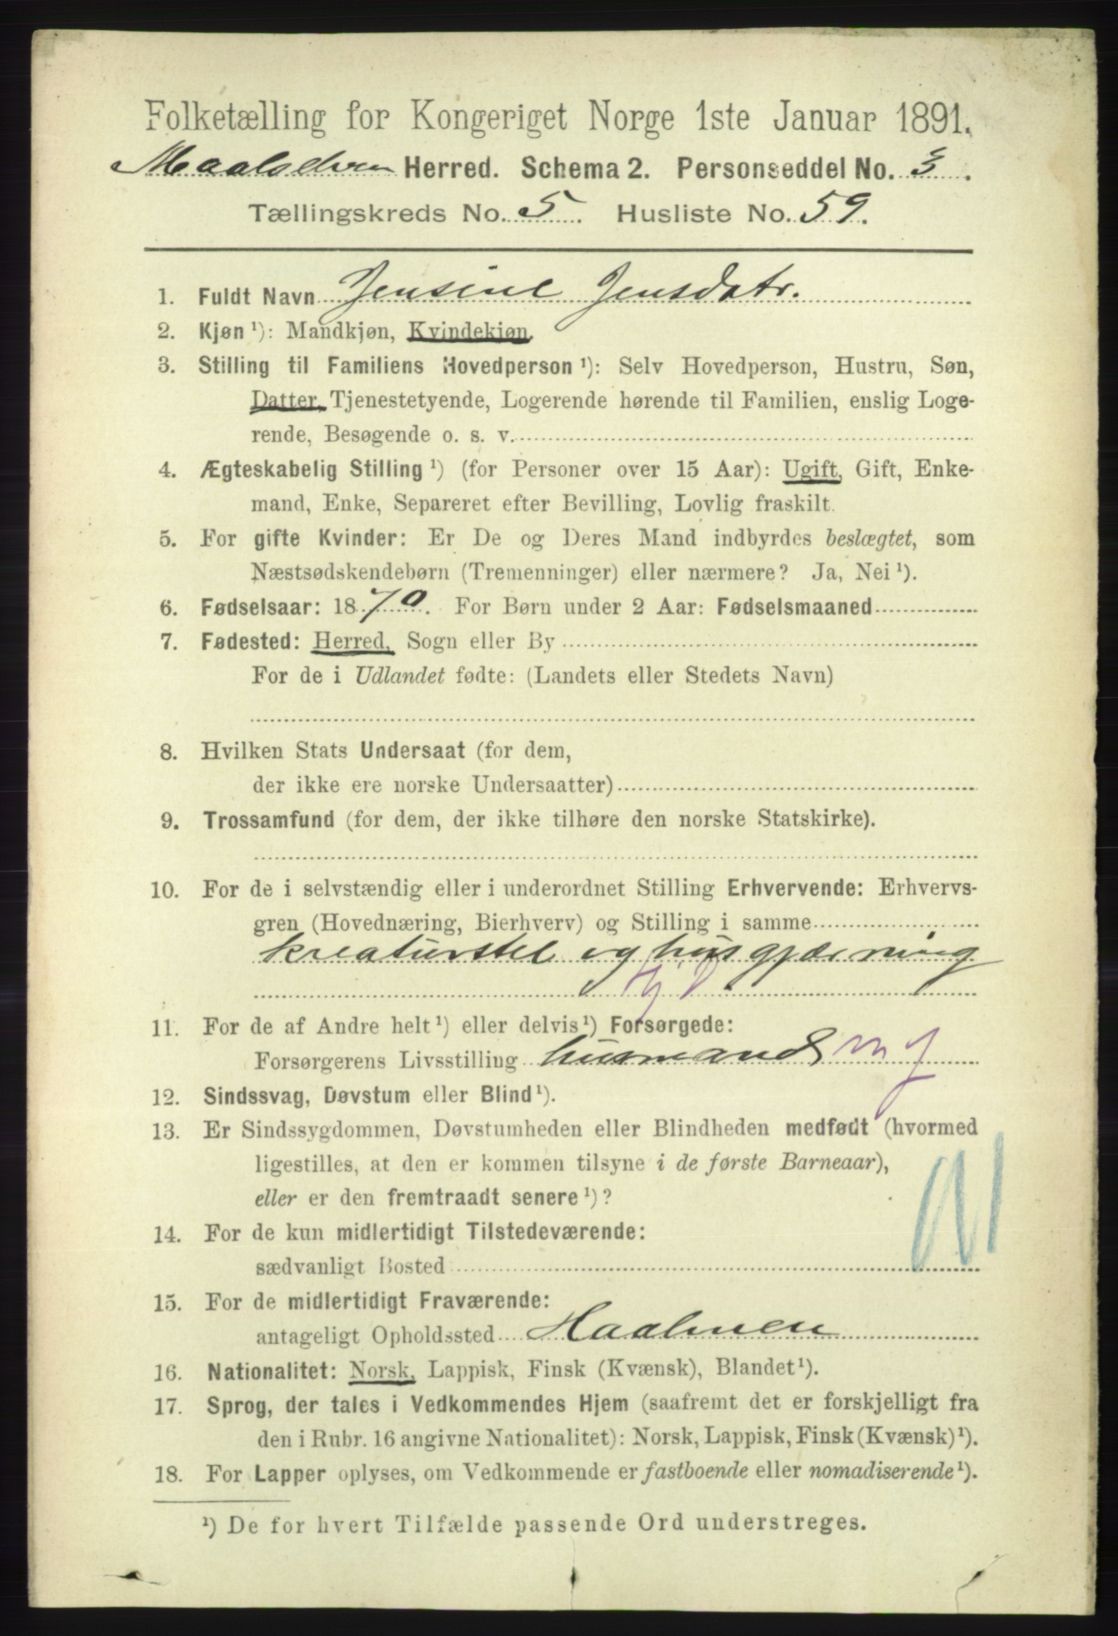 Folketælling for Kongeriget Norge 1ste Januar 1891.
Maalselven Herred. Schema 2. Personseddel No. 3.
Tællingskreds No. 5. Husliste No. 59.
1. Fuldt Navn Jensine Jensdatr.
2. Kjøn ¹): Mandkjøn, Kvindekjøn.
3. Stilling til Familiens Hovedperson ¹): Selv Hovedperson, Hustru, Søn,
Datter, Tjenestetyende, Logerende hørende til Familien, enslig Loge-
rende, Besøgende o. s. v.
4. Ægteskabelig Stilling ¹) (for Personer over 15 Aar): Ugift, Gift, Enke-
mand, Enke, Separeret efter Bevilling, Lovlig fraskilt.
5. For gifte Kvinder: Er De og Deres Mand indbyrdes beslægtet, som
Næstsødskendebørn (Tremenninger) eller nærmere? Ja, Nei ¹).
6. Fødselsaar: 1870. For Børn under 2 Aar: Fødselsmaaned
7. Fødested: Herred, Sogn eller By
For de i Udlandet fødte: (Landets eller Stedets Navn)
8. Hvilken Stats Undersaat (for dem,
der ikke ere norske Undersaatter)
9. Trossamfund (for dem, der ikke tilhøre den norske Statskirke).
10. For de i selvstændig eller i underordnet Stilling Erhvervende: Erhvervs-
gren (Hovednæring, Bierhverv) og Stilling i samme
kreaturstel og husgjærning
11. For de af Andre helt ¹) eller delvis ¹) Forsørgede:
Forsørgerens Livsstilling husmand
12. Sindssvag, Døvstum eller Blind ¹).
13. Er Sindssygdommen, Døvstumheden eller Blindheden medfødt (hvormed
ligestilles, at den er kommen tilsyne i de første Barneaar),
eller er den fremtraadt senere ¹)?
14. For de kun midlertidigt Tilstedeværende:
sædvanligt Bosted
15. For de midlertidigt Fraværende:
antageligt Opholdssted Haalmen
16. Nationalitet: Norsk, Lappisk, Finsk (Kvænsk), Blandet ¹).
17. Sprog, der tales i Vedkommendes Hjem (saafremt det er forskjelligt fra
den i Rubr. 16 angivne Nationalitet): Norsk, Lappisk, Finsk (Kvænsk) ¹).
18. For Lapper oplyses, om Vedkommende er fastboende eller nomadiserende ¹).
¹) De for hvert Tilfælde passende Ord understreges.